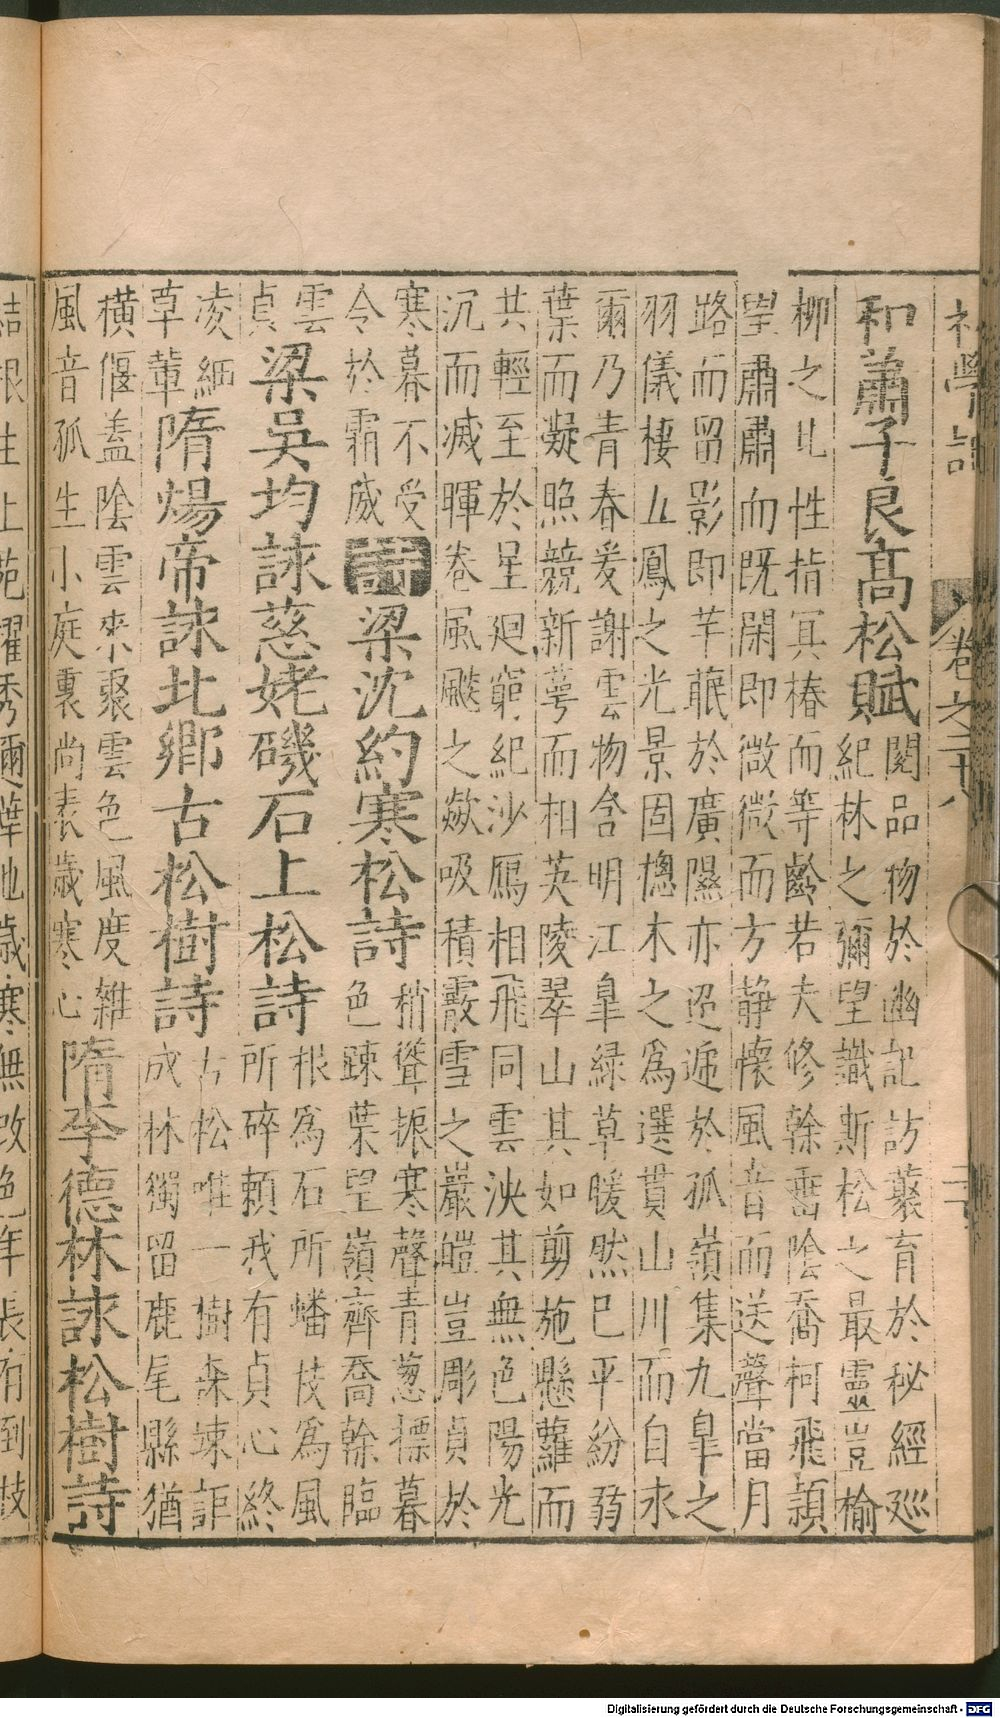 初學記 卷之二十八
和蕭子良高松賦
閱品物於幽記訪藂育於秘經廵
紀林之彌望識斯松之最靈豈榆
柳之比性指冥椿而等齡若夫修榦畱陰喬柯飛頴
望肅肅而既閑即微微而方静懷風音而送聲當月
路而留影即芊眠於廣隰亦迢遞於孤嶺集九臯之
羽儀棲五鳳之光景固摠木之為選貫山川而自永
爾乃青春爰謝雲物含明江臯緑草暖然已平紛弱
葉而凝照競新萼而相英陵翠山其如剪施懸蘿而
共輕至於星廻窮紀沙鴈相飛同雲泱其無色陽光
沉而減暉卷風飈之欻吸積霰雪之巖皚豈彫貞於
寒暮不受
令於霜威
詩 梁沈約寒松詩
梢聳振寒聲青葱摽暮
色踈葉望嶺齊喬榦臨
雲
梁吳均詠慈姥磯石上松詩
根為石所蟠枝為風
所碎賴我有貞心終
凌細
草輩
隋煬帝詠北鄉古松樹詩
古松唯一樹森竦詎
成林獨留鹿尾縣猶
橫偃葢陰雲來聚雲色風度雜
風音孤生小庭裏尚表歲寒心
隋李德林詠松樹詩
結根生上苑擢秀邇華池歳寒無改色年長有倒枝
Digitalisierung gefördert durch die Deutsche Forschungsgemeinschaft - DFG